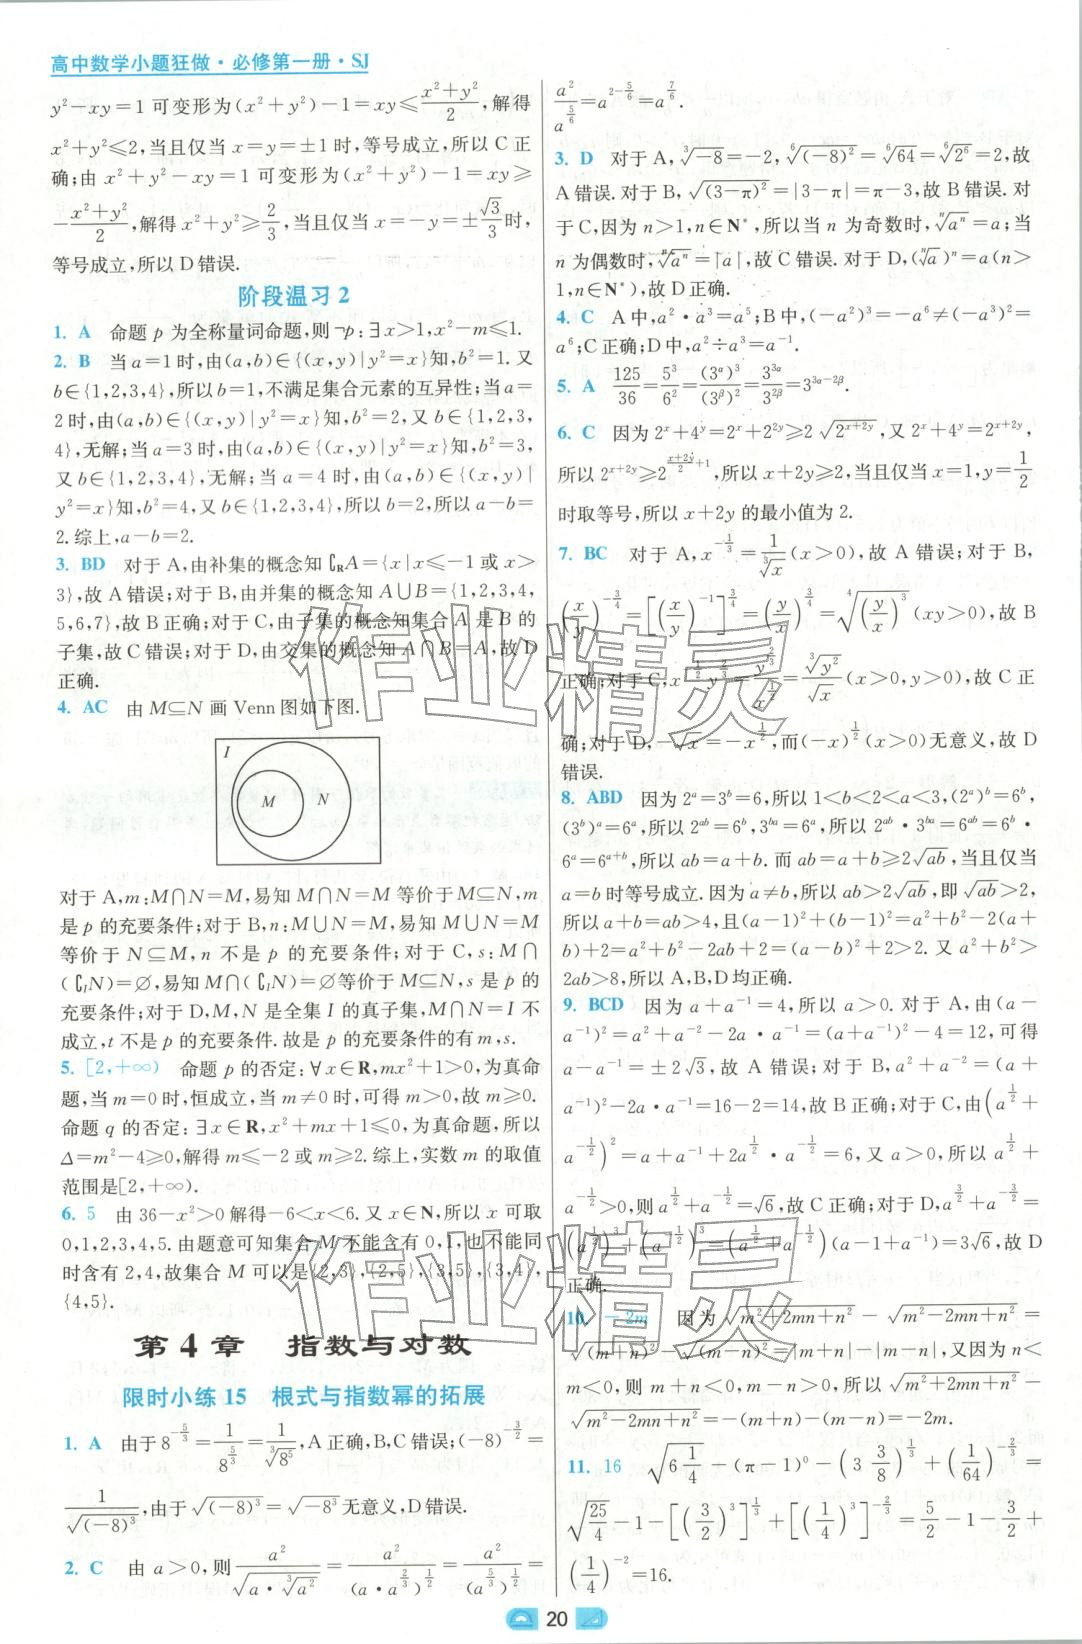 高中数学小题狂做·必修第一册·SJ
y²-xy=1 可变形为(x²+y²)-1=xy≤(x²+y²)/2,解得
x²+y²≤2,当且仅当 x=y=±1 时,等号成立,所以 C 正
确;由 x²+y²-xy=1 可变形为(x²+y²)-1=xy≥
-(x²+y²)/2,解得 x²+y²≥2/3,当且仅当 x=-y=±√3/3时,
等号成立,所以 D 错误.
阶段温习 2
1. A 命题 p 为全称量词命题,则¬p:∃x>1,x²-m≤1.
2. B 当 a=1 时,由(a,b)∈{(x,y)|y²=x}知,b²=1. 又
b∈{1,2,3,4},所以 b=1,不满足集合元素的互异性;当 a=
2 时,由(a,b)∈{(x,y)|y²=x}知,b²=2,又 b∈{1,2,3,
4},无解;当 a=3 时,由(a,b)∈{(x,y)|y²=x}知,b²=3,
又 b∈{1,2,3,4},无解;当 a=4 时,由(a,b)∈{(x,y)|
y²=x}知,b²=4,又 b∈{1,2,3,4},所以 b=2,所以 a-b=
2.综上,a-b=2.
3. BD 对于 A,由补集的概念知 ∁_R A={x|x≤-1 或 x>
3},故 A 错误;对于 B,由并集的概念知 A∪B={1,2,3,4,
5,6,7},故 B 正确;对于 C,由子集的概念知集合 A 是 B 的
子集,故 C 错误;对于 D,由交集的概念知 A∩B=A,故 D
正确.
4. AC 由 M⊆N 画 Venn 图如下图.
I
M N
对于 A,m:M∩N=M,易知 M∩N=M 等价于 M⊆N,m
是 p 的充要条件;对于 B,n:M∪N=M,易知 M∪N=M
等价于 N⊆M,n 不是 p 的充要条件;对于 C,s:M∩
(∁_I N)=∅,易知 M∩(∁_I N)=∅等价于 M⊆N,s 是 p 的
充要条件;对于 D,M,N 是全集 I 的真子集,M∩N=I 不
成立,t 不是 p 的充要条件.故是 p 的充要条件的有 m,s.
5. [2,+∞) 命题 p 的否定:∀x∈R,mx²+1>0,为真命
题,当 m=0 时,恒成立,当 m≠0 时,可得 m>0,故 m≥0.
命题 q 的否定:∃x∈R,x²+mx+1≤0,为真命题,所以
Δ=m²-4≥0,解得 m≤-2 或 m≥2. 综上,实数 m 的取值
范围是[2,+∞).
6. 5 由 36-x²>0 解得-6<x<6. 又 x∈N,所以 x 可取
0,1,2,3,4,5. 由题意可知集合 M 不能含有 0,1,也不能同
时含有 2,4,故集合 M 可以是{2,3},{2,5},{3,5},{3,4},
{4,5}.
第 4 章 指数与对数
限时小练 15 根式与指数幂的拓展
1. A 由于 8^(-5/3)=1/8^(5/3)=1/∛(8⁵),A 正确,B,C 错误;(-8)^(-3/2)=
1/√((-8)³),由于 √((-8)³)=√(-8³)无意义,D 错误.
2. C 由 a>0,则 a²/√(a·∛(a²))=a²/(a·a^(2/3))^(1/2)=a²/(a^(5/3))^(1/2)=
a²/a^(5/6)=a^(2-5/6)=a^(7/6).
3. D 对于 A,∛(-8)=-2,⁶√((-8)²)=⁶√64=⁶√(2⁶)=2,故
A 错误. 对于 B,√((3-π)²)=|3-π|=π-3,故 B 错误. 对
于 C,因为 n>1,n∈N*,所以当 n 为奇数时,ⁿ√(aⁿ)=a;当
n 为偶数时,ⁿ√(aⁿ)=|a|,故 C 错误. 对于 D,(ⁿ√a)ⁿ=a(n>
1,n∈N*),故 D 正确.
4. C A 中,a²·a³=a⁵;B 中,(-a²)³=-a⁶≠(-a³)²=
a⁶;C 正确;D 中,a²÷a³=a⁻¹.
5. A 125/36=5³/6²=(3^α)³/(3^β)²=3^(3α)/3^(2β)=3^(3α-2β).
6. C 因为 2^x+4^y=2^x+2^(2y)≥2√(2^(x+2y)),又 2^x+4^y=2^(x+2y),
所以 2^(x+2y)≥2^((x+2y)/2+1),所以 x+2y≥2,当且仅当 x=1,y=1/2
时取等号,所以 x+2y 的最小值为 2.
7. BC 对于 A,x^(-1/3)=1/∛x(x>0),故 A 错误;对于 B,
(x/y)^(-3/4)=[(x/y)^(-1)]^(3/4)=(y/x)^(3/4)=⁴√((y/x)³)(xy>0),故 B
正确;对于 C,x^(-1/2)y^(2/3)=y^(2/3)/x^(1/2)=∛(y²)/√x(x>0,y>0),故 C 正
确;对于 D,-√x=-x^(1/2),而(-x)^(1/2)(x>0)无意义,故 D
错误.
8. ABD 因为 2^a=3^b=6,所以 1<b<2<a<3,(2^a)^b=6^b,
(3^b)^a=6^a,所以 2^(ab)=6^b,3^(ba)=6^a,所以 2^(ab)·3^(ba)=6^(ab)=6^b·
6^a=6^(a+b),所以 ab=a+b. 而 ab=a+b≥2√(ab),当且仅当
a=b 时等号成立. 因为 a≠b,所以 ab>2√(ab),即√(ab)>2,
所以 a+b=ab>4,且(a-1)²+(b-1)²=a²+b²-2(a+
b)+2=a²+b²-2ab+2=(a-b)²+2>2. 又 a²+b²>
2ab>8,所以 A,B,D 均正确.
9. BCD 因为 a+a⁻¹=4,所以 a>0. 对于 A,由(a-
a⁻¹)²=a²+a⁻²-2a·a⁻¹=(a+a⁻¹)²-4=12,可得
a-a⁻¹=±2√3,故 A 错误;对于 B,a²+a⁻²=(a+
a⁻¹)²-2a·a⁻¹=16-2=14,故 B 正确;对于 C,由(a^(1/2)+
a^(-1/2))²=a+a⁻¹+2a^(1/2)·a^(-1/2)=6,又 a>0,所以 a^(1/2)+
a^(-1/2)>0,则 a^(1/2)+a^(-1/2)=√6,故 C 正确;对于 D,a^(3/2)+a^(-3/2)=
(a^(1/2))³+(a^(-1/2))³=(a^(1/2)+a^(-1/2))(a-1+a⁻¹)=3√6,故 D
正确.
10. -2m 因为 √(m²+2mn+n²)-√(m²-2mn+n²)=
√((m+n)²)-√((m-n)²)=|m+n|-|m-n|,又因为 n<
m<0,则 m+n<0,m-n>0,所以 √(m²+2mn+n²)-
√(m²-2mn+n²)=-(m+n)-(m-n)=-2m.
11. 16 √(6 1/4)-(π-1)⁰-(3 3/8)^(1/3)+(1/64)^(-2/3)=
√(25/4)-1-[(3/2)³]^(1/3)+[(1/4)³]^(-2/3)=5/2-1-3/2+
(1/4)^(-2)=16.
20
作业精灵
作业精灵